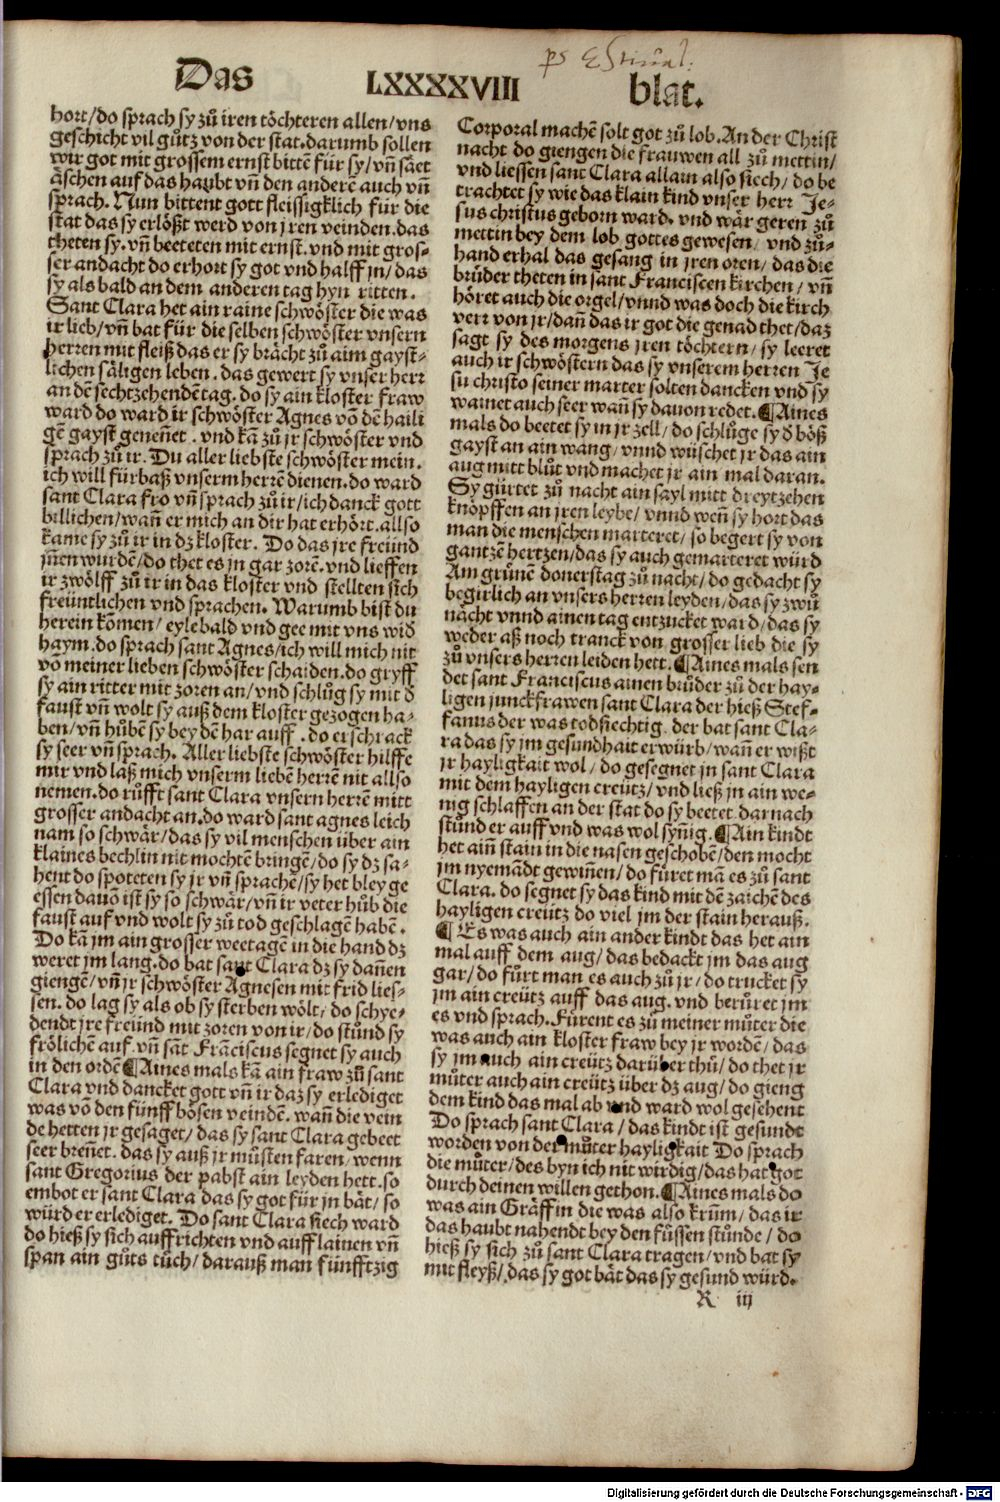 Das LXXXXVIII blat.
hort/do sprach sy zů iren töchteren allen/vns
geschicht vil gůtz von der stat.darumb sollen
wir got mit grossem ernst bittē für sy/vñ säet
äschen auf das haubt vñ den anderē auch vñ
sprach. Nun bittent gott fleissigklich für die
stat das sy erlößt werd von jren veinden.das
theten sy.vñ beeteten mit ernst.vnd mit gros-
ser andacht do erhort sy got vnd halff jn/das
sy als bald an dem anderen tag hyn ritten.
Sant Clara het ain raine schwöster die was
ir lieb/vñ bat für die selben schwöster vnsern
herren mit fleiß das er sy brächt zů aim gayst-
lichen säligen leben.das gewert sy vnser herr
an dē sechtzehendē tag.do sy ain kloster fraw
ward do ward ir schwöster Agnes vō dē haili
gē gayst genēnet.vnd kā zů jr schwöster vnd
sprach zů ir.Du aller liebste schwöster mein.
ich will fürbaß vnserm herrē dienen.do ward
sant Clara fro vñ sprach zů ir/ich danck gott
billichen/wañ er mich an dir hat erhört.allso
kame sy zů ir in dz kloster. Do das jre freünd
jñen wurdē/do thet es jn gar zorē.vnd lieffen
ir zwölff zů ir in das kloster vnd stellten sich
freüntlichen vnd sprachen.Warumb bist du
herein kōmen/eylebald vnd gee mit vns wid
haym.do sprach sant Agnes/ich will mich nit
vō meiner lieben schwöster schaiden.do gryff
sy ain ritter mit zoren an/vnd schlůg sy mit d
faust vñ wolt sy auß dem kloster gezogen ha-
ben/vñ hůben sy bey dē har auff.do erschrack
sy seer vñ sprach. Aller liebste schwöster hilffe
mir vnd laß mich vnserm liebē herrē nit allso
nemen.do růfft sant Clara vnsern herrē mitt
grosser andacht an.do ward sant agnes leich
nam so schwär/das sy vil menschen über ain
klaines bechlin nit mochtē bringē/do sy dz sa-
hent do spoteten sy jr vñ sprachē/sy het bley ge
essen dauō ist sy so schwär/vñ ir veter hůb die
faust auf vnd wolt sy zů tod geschlagē habē.
Do kā jm ain grosser weetagē in die hand dz
weret jm lang.do bat sant Clara dz sy dañen
giengē/vñ jr schwöster Agnesen mit frid lies-
sen.do lag sy als ob sy sterben wölt/do schye-
dendt jre freünd mit zoren von ir/do stůnd sy
frölichē auf.vñ sāt Frāciscus segnet sy auch
in den ordē ¶Aines mals kā ain fraw zů sant
Clara vnd dancket gott vñ ir daz sy erlediget
was vō den fünff bösen veindē.wañ die vein
de hetten jr gesaget/das sy sant Clara gebeet
seer breñet.das sy auß jr můsten faren/wenn
sant Gregorius der pabst ain leyden hett.so
embot er sant Clara das sy got für jn bät/so
würd er erlediget. Do sant Clara siech ward
do hieß sy sich auffrichten vnd auff lainen vñ
span ain gůts tůch/darauß man fünfftzig
Corporal machē solt got zů lob.An der Christ
nacht do giengen die frauwen all zů mettin/
vnd liessen sant Clara allain also siech/do be
trachtet sy wie das klain kind vnser herr Je-
sus christus geborn ward.vnd wär geren zů
mettin bey dem lob gottes gewesen/vnd zů-
hand erhal das gesang in jren oren/das die
brůder theten in sant Franciscen kirchen/vñ
höret auch die orgel/vnnd was doch die kirch
verr von jr/dañ das ir got die genad thet/daz
sagt sy des morgens jren töchtern/sy leeret
auch ir schwöstern das sy vnserem herren Je
su christo seiner marter solten dancken vnd sy
wainet auch seer wañ sy dauon redet.¶Aines
mals do beetet sy in jr zell/do schlůge sy d böß
gayst an ain wang/vnnd wüschet jr das ain
aug mitt blůt vnd machet jr ain mal daran.
Sy gürtet zů nacht ain sayl mitt dreytzehen
knöpffen an jren leybe/vnnd weñ sy hort das
man die menschen marteret/so begert sy von
gantzē hertzen/das sy auch gemarteret würd
Am grůnē donerstag zů nacht/do gedacht sy
begirlich an vnsers herren leyden/das sy zwů
nächt vnnd ainen tag entzucket ward/das sy
weder aß noch tranck von grosser lieb die sy
zů vnsers herren leiden hett.¶Aines mals sen
det sant Franciscus ainen brůder zů der hay-
ligen junckfrawen sant Clara der hieß Stef-
fanus der was todsiechtig.der bat sant Cla-
ra das sy jm gesundhait erwürb/wañ er wißt
jr hayligkait wol/do gesegnet jn sant Clara
mit dem hayligen creütz/vnd ließ jn ain we-
nig schlaffen an der stat do sy beetet.darnach
stůnd er auff vnd was wol syñig.¶Ain kindt
het aiñ stain in die nasen geschobē/den mocht
jm nyemādt gewiñen/do füret mā es zů sant
Clara.do segnet sy das kind mit dē zaichē des
hayligen creütz do viel jm der stain herauß.
¶Es was auch ain ander kindt das het ain
mal auff dem aug/das bedackt jm das aug
gar/do fürt man es auch zů jr/do trucket sy
jm ain creütz auff das aug.vnd berůret jm
es vnd sprach.Fürent es zů meiner můter die
was auch ain kloster fraw bey jr wordē/das
sy jm auch ain creütz darüber thů/do thet jr
můter auch ain creütz über dz aug/do gieng
dem kind das mal ab vnd ward wol gesehent
Do sprach sant Clara/das kindt ist gesundt
worden von der můter hayligkait Do sprach
die můter/des byn ich nit wirdig/das hat got
durch deinen willen gethon.¶Aines mals do
was ain Gräffin die was also krům/das ir
das haubt nahendt bey den füssen stůnde/do
hieß sy sich zů sant Clara tragen/vnd bat sy
mit fleyß/das sy got bät das sy gesund würd.
R iij
Digitalisierung gefördert durch die Deutsche Forschungsgemeinschaft - DFG